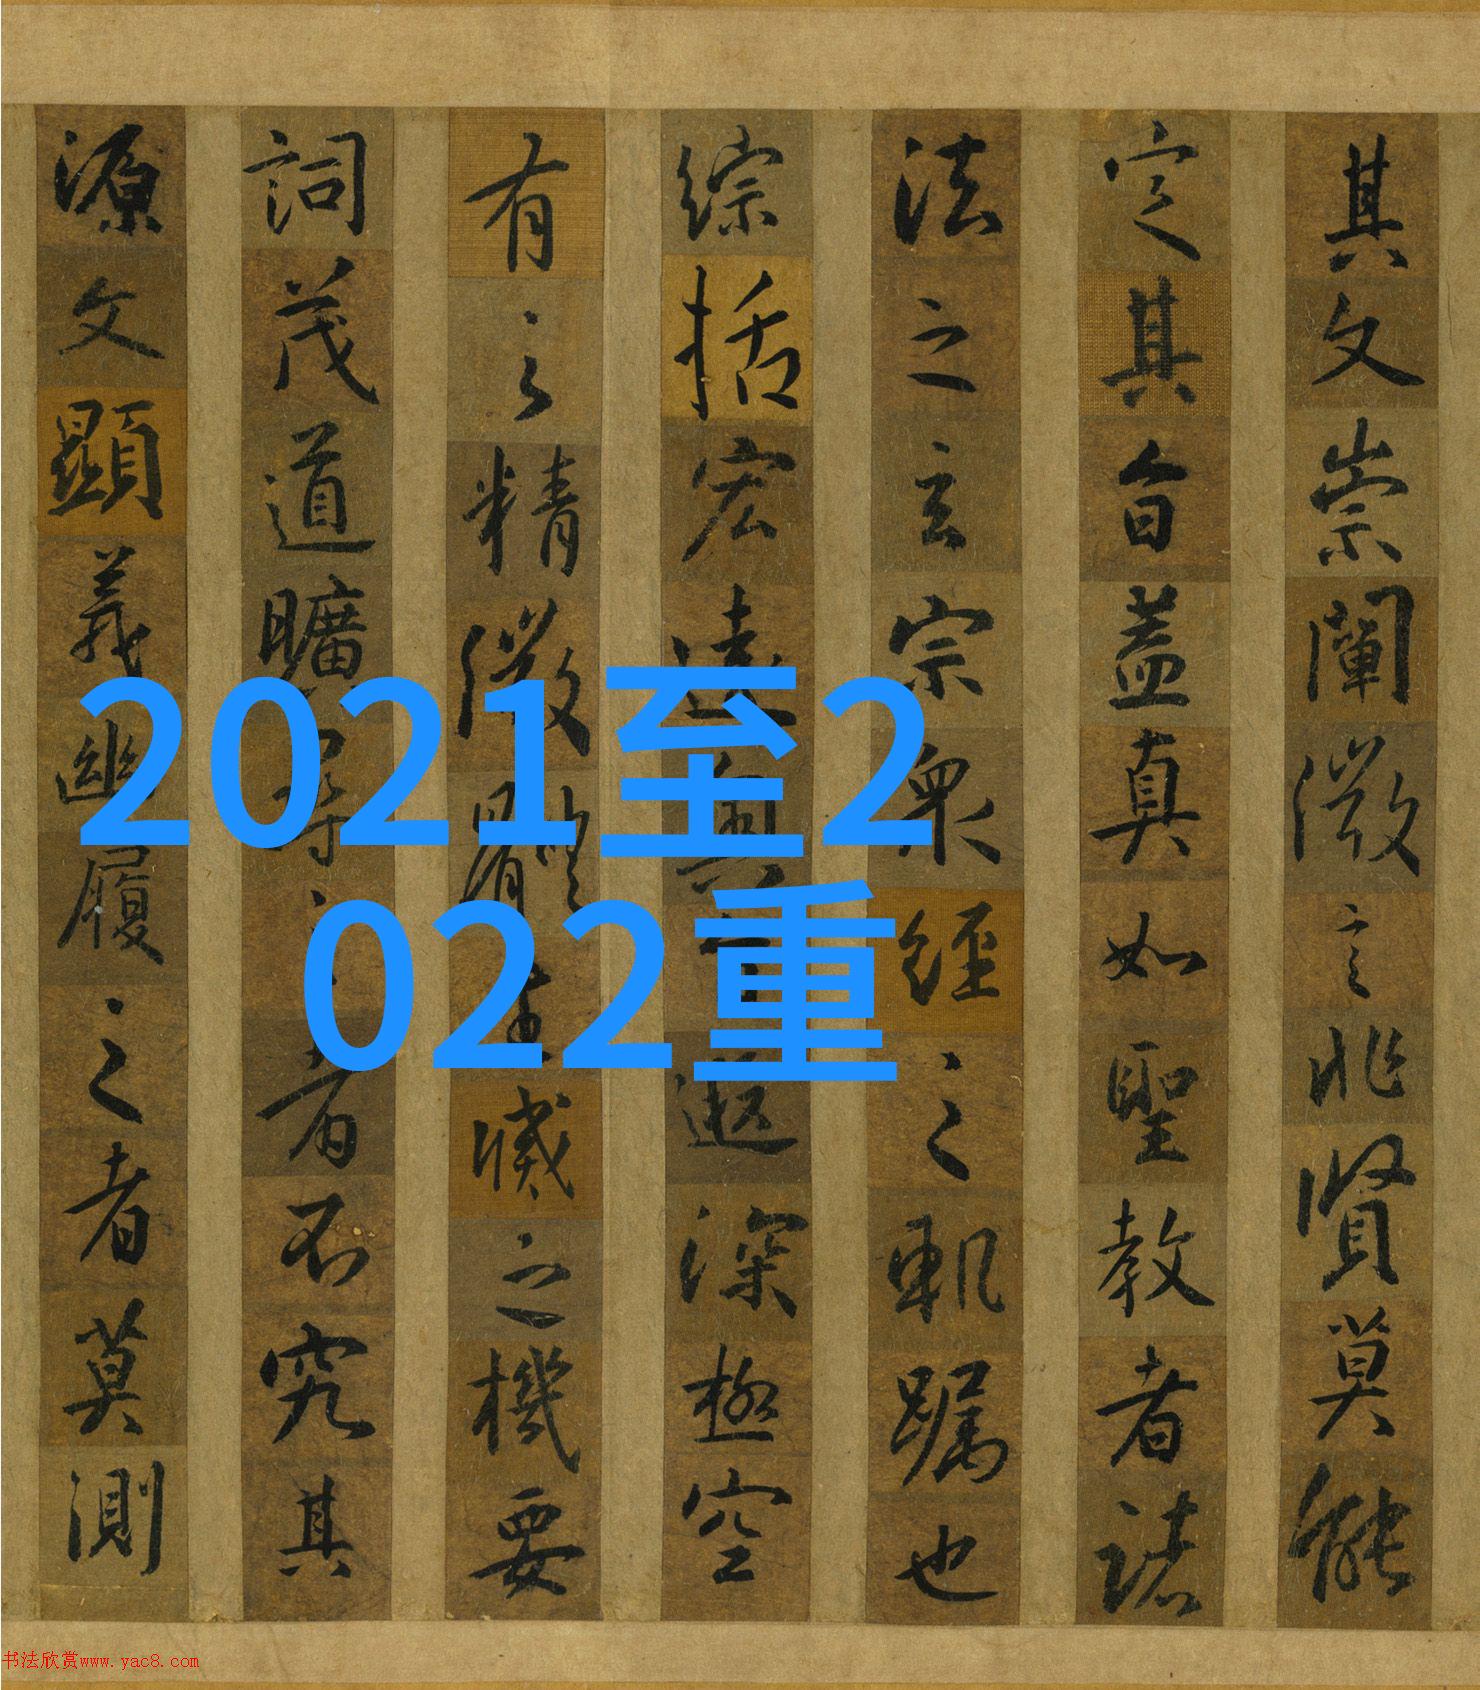 其文崇闡微言非賢莫能
定其旨蓋真如聖教者諸
法之玄宗衆經之軌躅也
綜括宏遠奧遐深極空
有之精微體滅之機要
詞茂道曠尋之者不究其
源文顯義幽履之者莫測
2021至2
022重
书法欣赏www.yac8.com